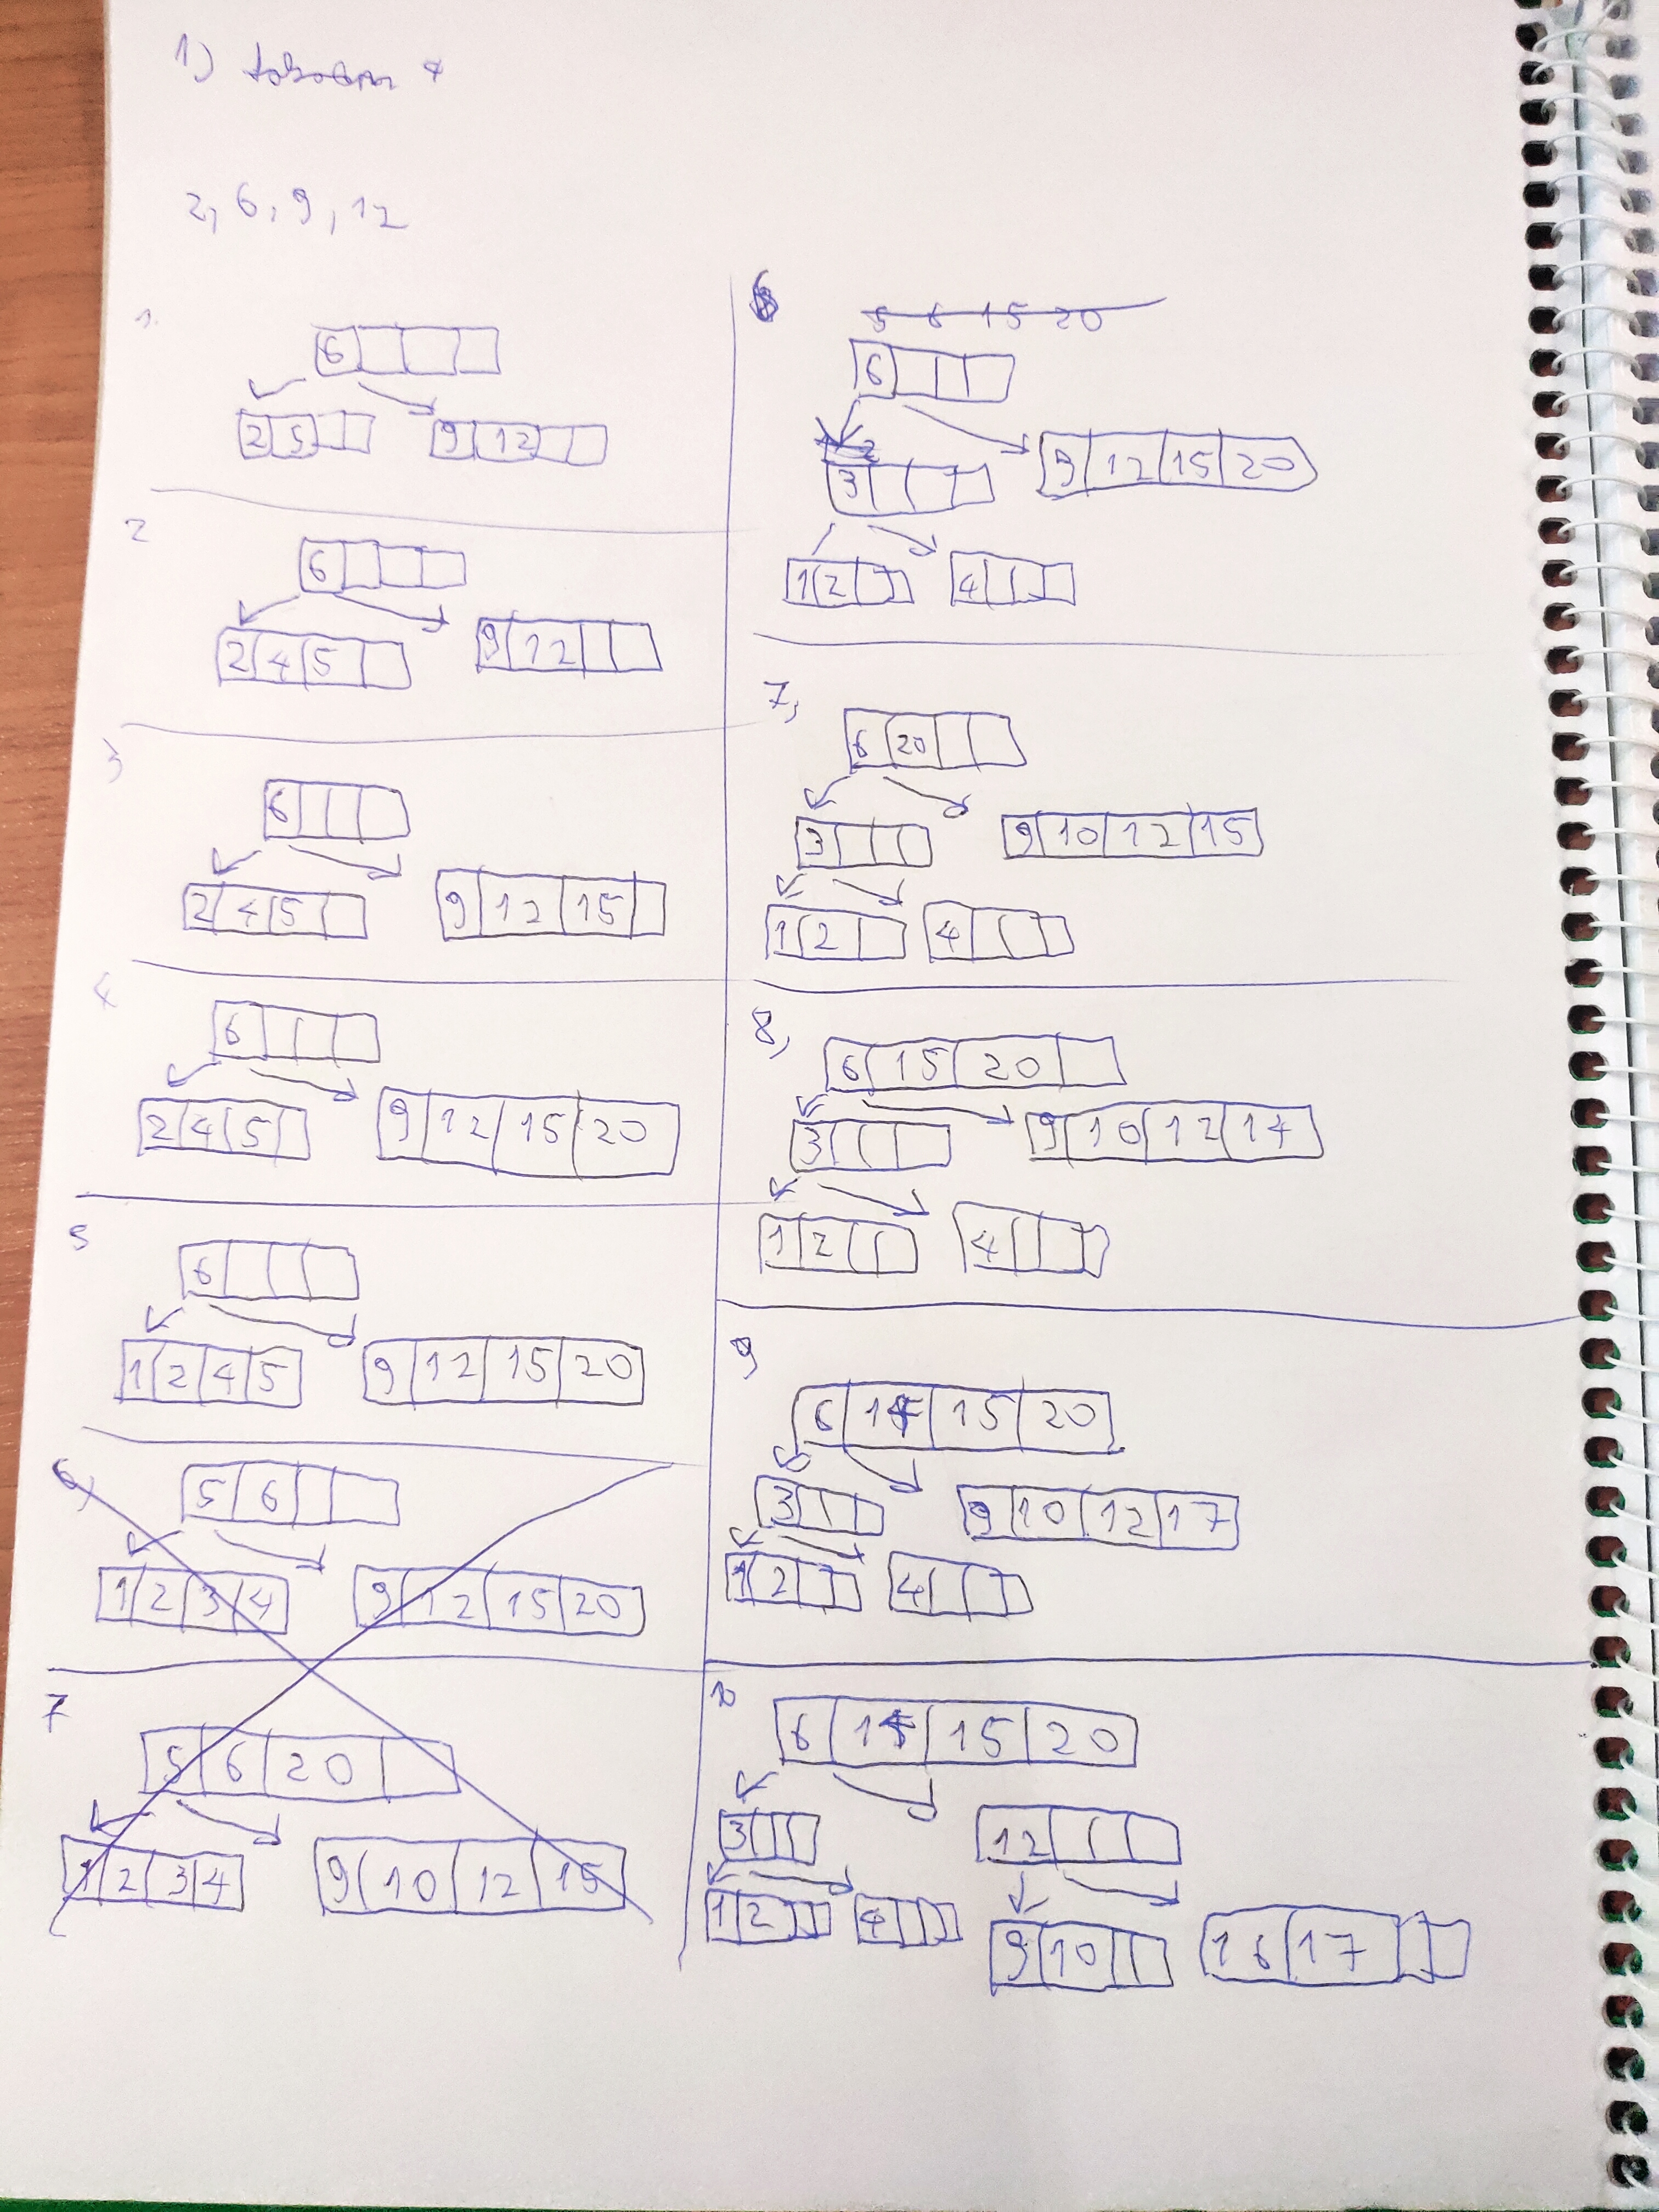 1)
2, 6, 9, 12
1.
6
2 5 9 12
2
6
2 4 5 9 12
3
6
2 4 5 9 12 15
4
6
2 4 5 9 12 15 20
5
6
1 2 4 5 9 12 15 20
6)
5 6
1 2 3 4 9 12 15 20
7
5 6 20
1 2 3 4 9 10 12 15
6
5 6 15 20
6
3 9 12 15 20
1 2 4
7,
6 20
3 9 10 12 15
1 2 4
8,
6 15 20
3 9 10 12 17
1 2 4
9
6 15 20
3 9 10 12 17
1 2 4
10
6 15 20
3 12
1 2 4 9 10 16 17